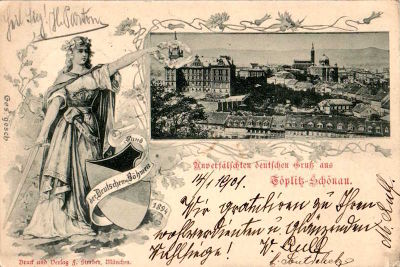 Heil Sieg!
Ges. gesch.
Bund
der Deutschen
Böhmens
1894
Unverfälschten deutschen Gruß aus
Töplitz-Schönau.
14/1 1901.
Wir gratuliren zu Ihrem
wohlverdienten u. glänzenden
Wahlsiege!
Druck und Verlag F. München.